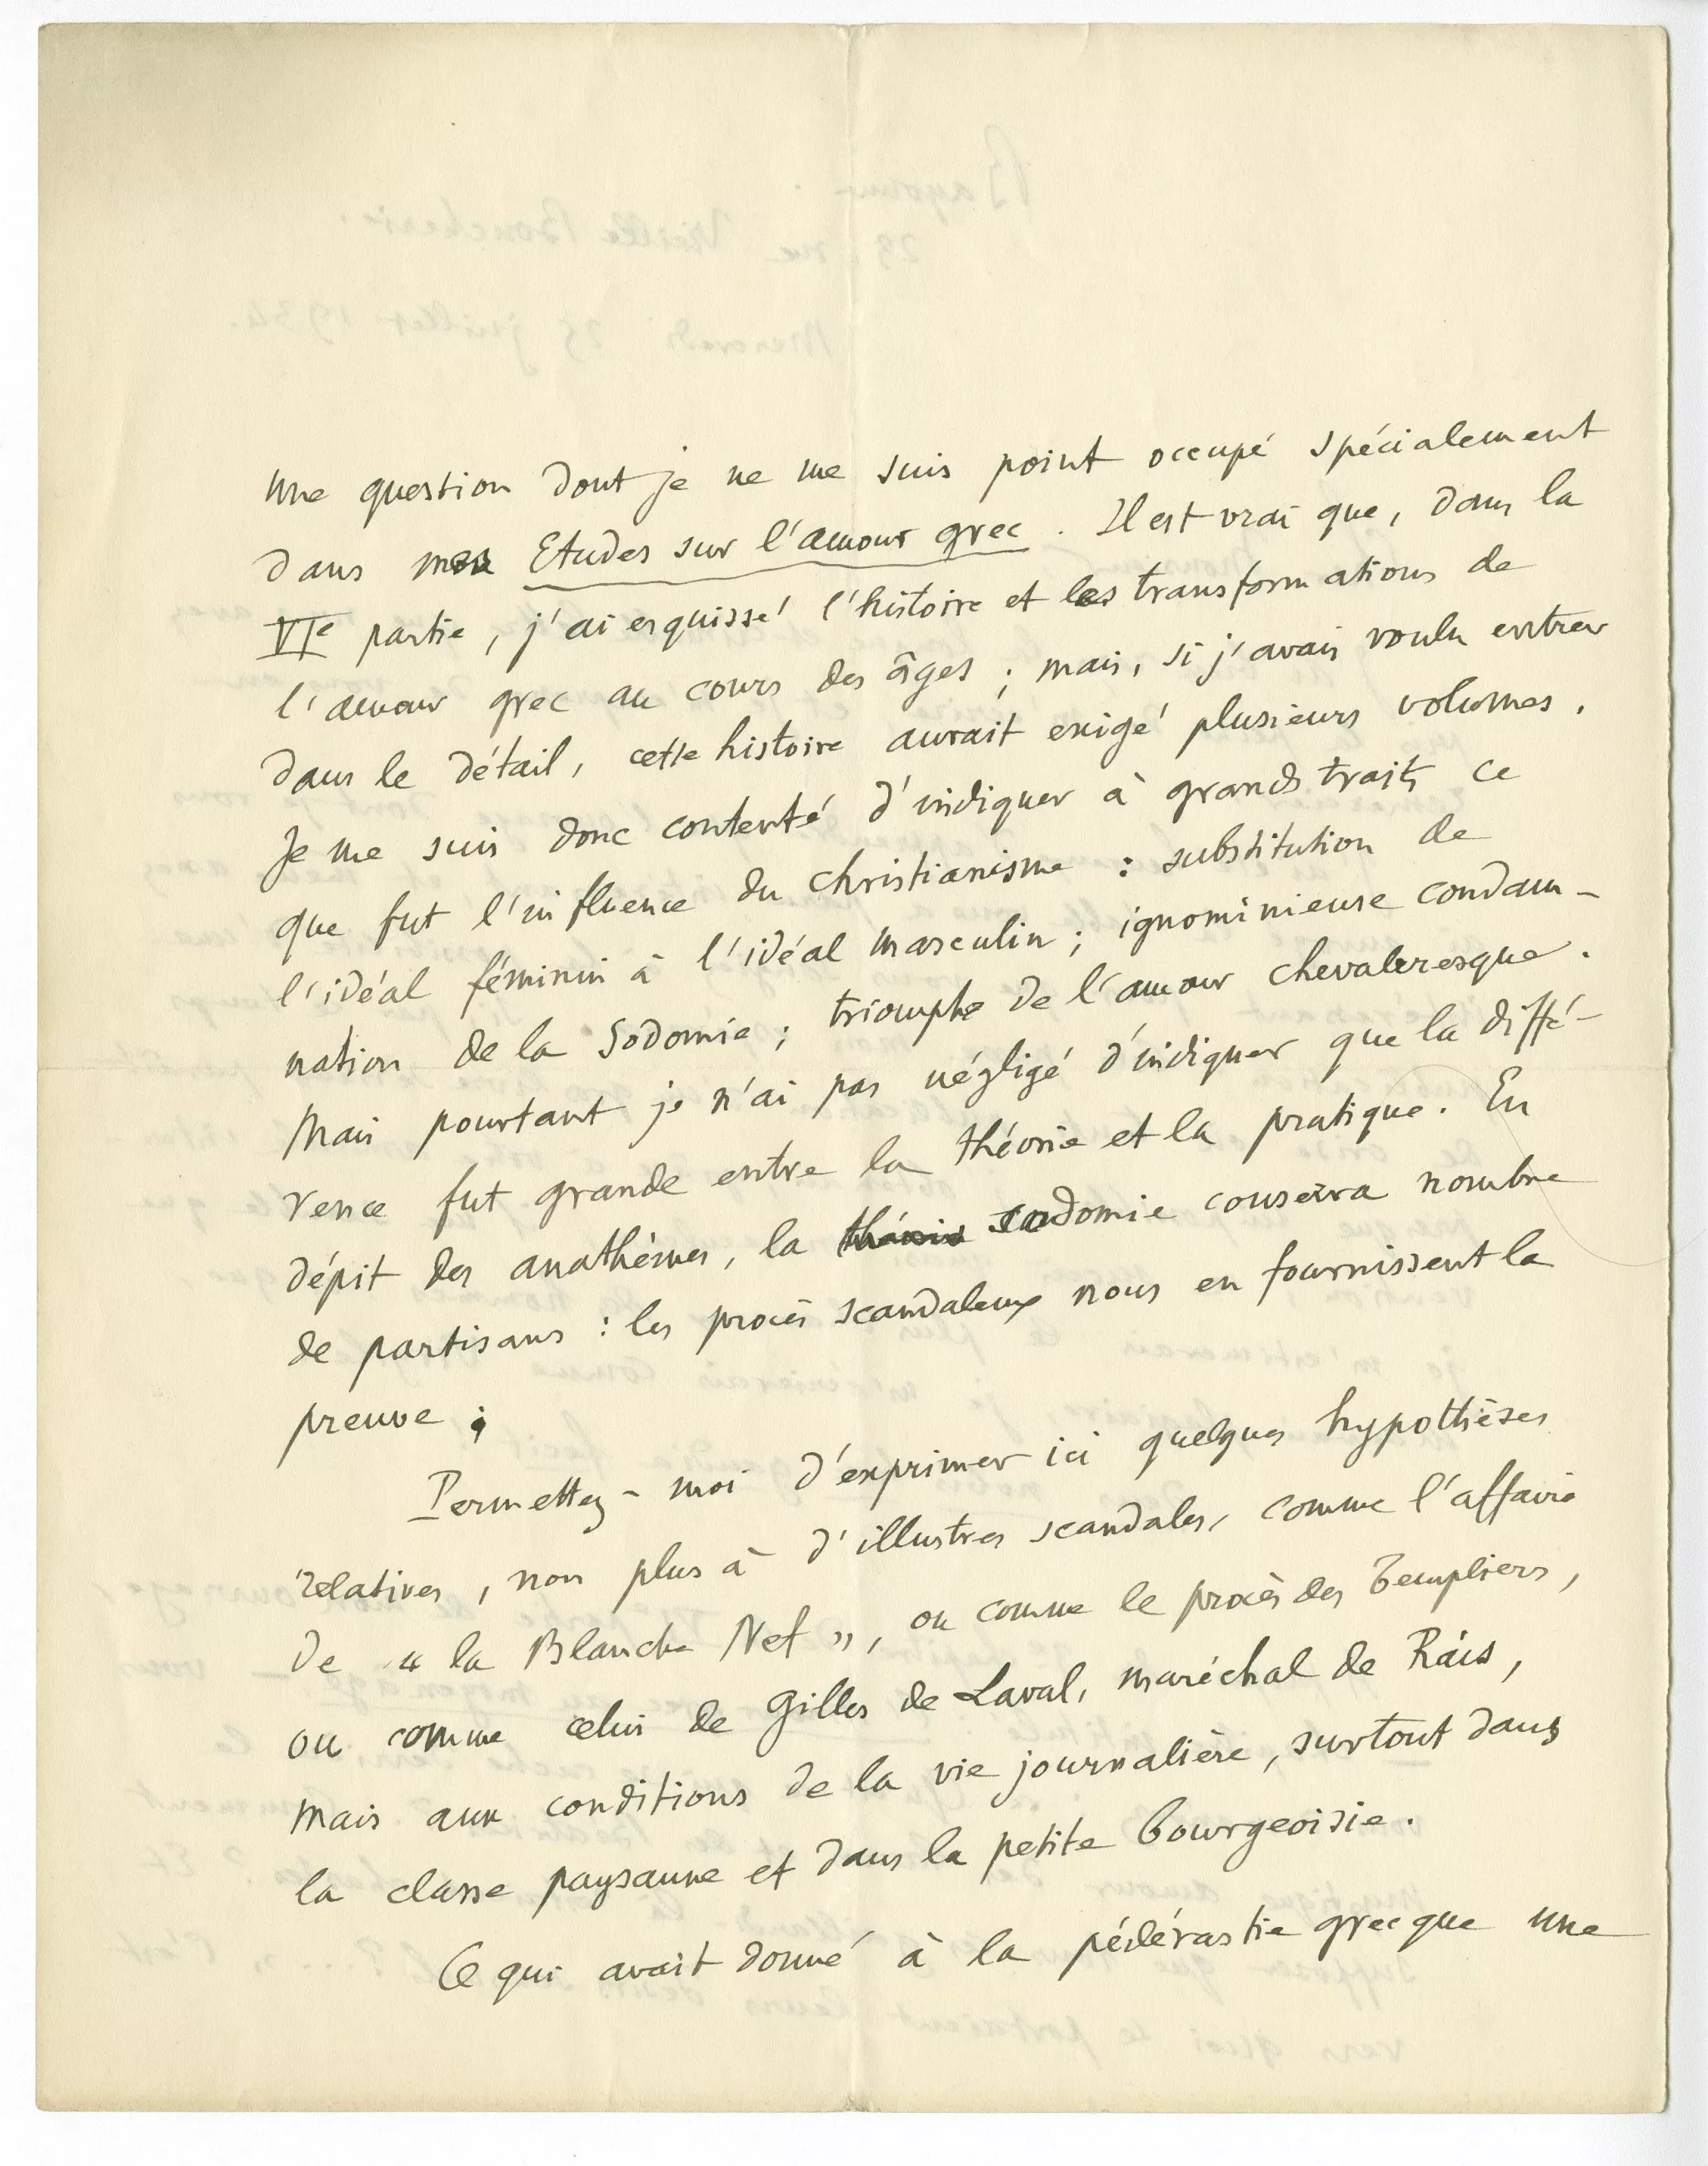 une question dont je ne me suis point occupé spécialement
dans mes Etudes sur l'amour grec. Il est vrai que, dans la
VIe partie, j'ai esquissé l'histoire et les transformations de
l'amour grec au cours des âges ; mais, si j'avais voulu entrer
dans le détail, cette histoire aurait exigé plusieurs volumes.
Je me suis donc contenté d'indiquer à grands traits ce
que fut l'influence du christianisme : substitution de
l'idéal féminin à l'idéal masculin ; ignominieuse condam-
nation de la Sodomie ; triomphe de l'amour chevaleresque.
Mais pourtant je n'ai pas négligé d'indiquer que la diffé-
rence fut grande entre la théorie et la pratique. En
dépit des anathèmes, la sodomie conserva nombre
de partisans : les procès scandaleux nous en fournissent la
preuve ;
Permettez-moi d'exprimer ici quelques hypothèses
relatives, non plus à d'illustres scandales, comme l'affaire
de « la Blanche Nef », ou comme le procès des Templiers,
ou comme celui de Gilles de Laval, maréchal de Rais,
mais aux conditions de la vie journalière, surtout dans
la classe paysanne et dans la petite bourgeoisie.
Ce qui avait donné à la pédérastie grecque une